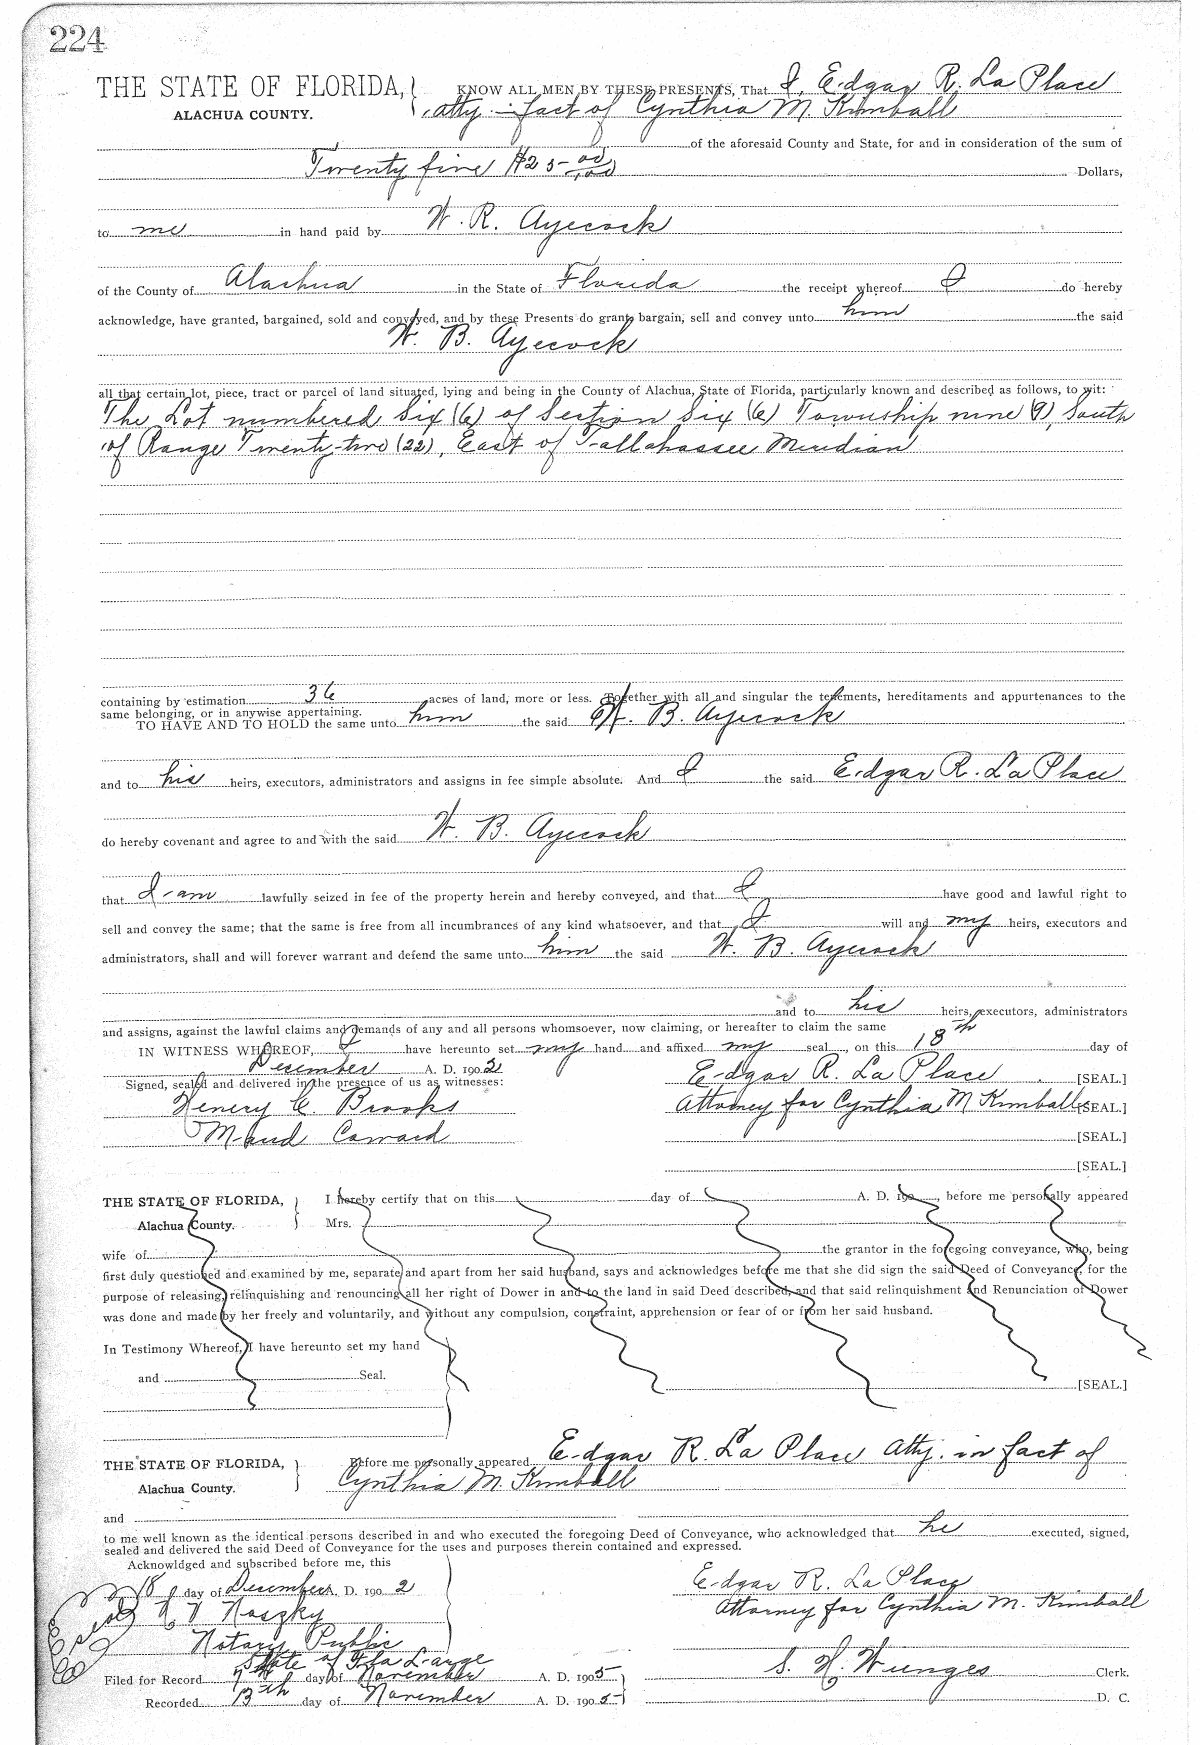 224
THE STATE OF FLORIDA, KNOW ALL MEN BY THESE PRESENTS, That I, Edgar R. La Place
ALACHUA COUNTY. , atty. in fact of Cynthia M. Kimball
of the aforesaid County and State, for and in consideration of the sum of
Twenty five $25 00/100 Dollars,
to me in hand paid by W. R. Ayecock
of the County of Alachua in the State of Florida the receipt whereof I do hereby
acknowledge, have granted, bargained, sold and conveyed, and by these Presents do grant, bargain, sell and convey unto him the said
W. B. Ayecock
all that certain lot, piece, tract or parcel of land situated, lying and being in the County of Alachua, State of Florida, particularly known and described as follows, to wit:
The Lot numbered Six (6) of Section Six (6) Township nine (9), South
of Range Twenty-two (22), East of Tallahassee Meridian
containing by estimation 36 acres of land, more or less. Together with all and singular the tenements, hereditaments and appurtenances to the
same belonging, or in anywise appertaining.
TO HAVE AND TO HOLD the same unto him the said W. B. Ayecock
and to his heirs, executors, administrators and assigns in fee simple absolute. And I the said Edgar R. La Place
do hereby covenant and agree to and with the said W. B. Ayecock
that I am lawfully seized in fee of the property herein and hereby conveyed, and that I have good and lawful right to
sell and convey the same; that the same is free from all incumbrances of any kind whatsoever, and that I will and my heirs, executors and
administrators, shall and will forever warrant and defend the same unto him the said W. B. Ayecock
and to his heirs, executors, administrators
and assigns, against the lawful claims and demands of any and all persons whomsoever, now claiming, or hereafter to claim the same
IN WITNESS WHEREOF, I have hereunto set my hand and affixed my seal, on this 18th day of
December A. D. 1902
Signed, sealed and delivered in the presence of us as witnesses: Edgar R. La Place [SEAL.]
Henery C. Brooks Attorney for Cynthia M Kimball [SEAL.]
Maud Coward [SEAL.]
[SEAL.]
THE STATE OF FLORIDA, I hereby certify that on this day of A. D. 190 , before me personally appeared
Alachua County. Mrs.
wife of the grantor in the foregoing conveyance, who, being
first duly questioned and examined by me, separate and apart from her said husband, says and acknowledges before me that she did sign the said Deed of Conveyance, for the
purpose of releasing, relinquishing and renouncing all her right of Dower in and to the land in said Deed described, and that said relinquishment and Renunciation of Dower
was done and made by her freely and voluntarily, and without any compulsion, constraint, apprehension or fear of or from her said husband.
In Testimony Whereof, I have hereunto set my hand
and Seal.
[SEAL.]
THE STATE OF FLORIDA, Before me personally appeared Edgar R. La Place Atty. in fact of
Alachua County. Cynthia M. Kimball
and
to me well known as the identical persons described in and who executed the foregoing Deed of Conveyance, who acknowledged that he executed, signed,
sealed and delivered the said Deed of Conveyance for the uses and purposes therein contained and expressed.
Acknowldged and subscribed before me, this
18 day of December A. D. 1902 Edgar R. La Place
Seal Attorney for Cynthia M. Kimball
Notary Public
State of Fla Large
Filed for Record 7th day of November A. D. 1905 S. H. Wienges Clerk.
Recorded 13th day of November A. D. 1905 D. C.